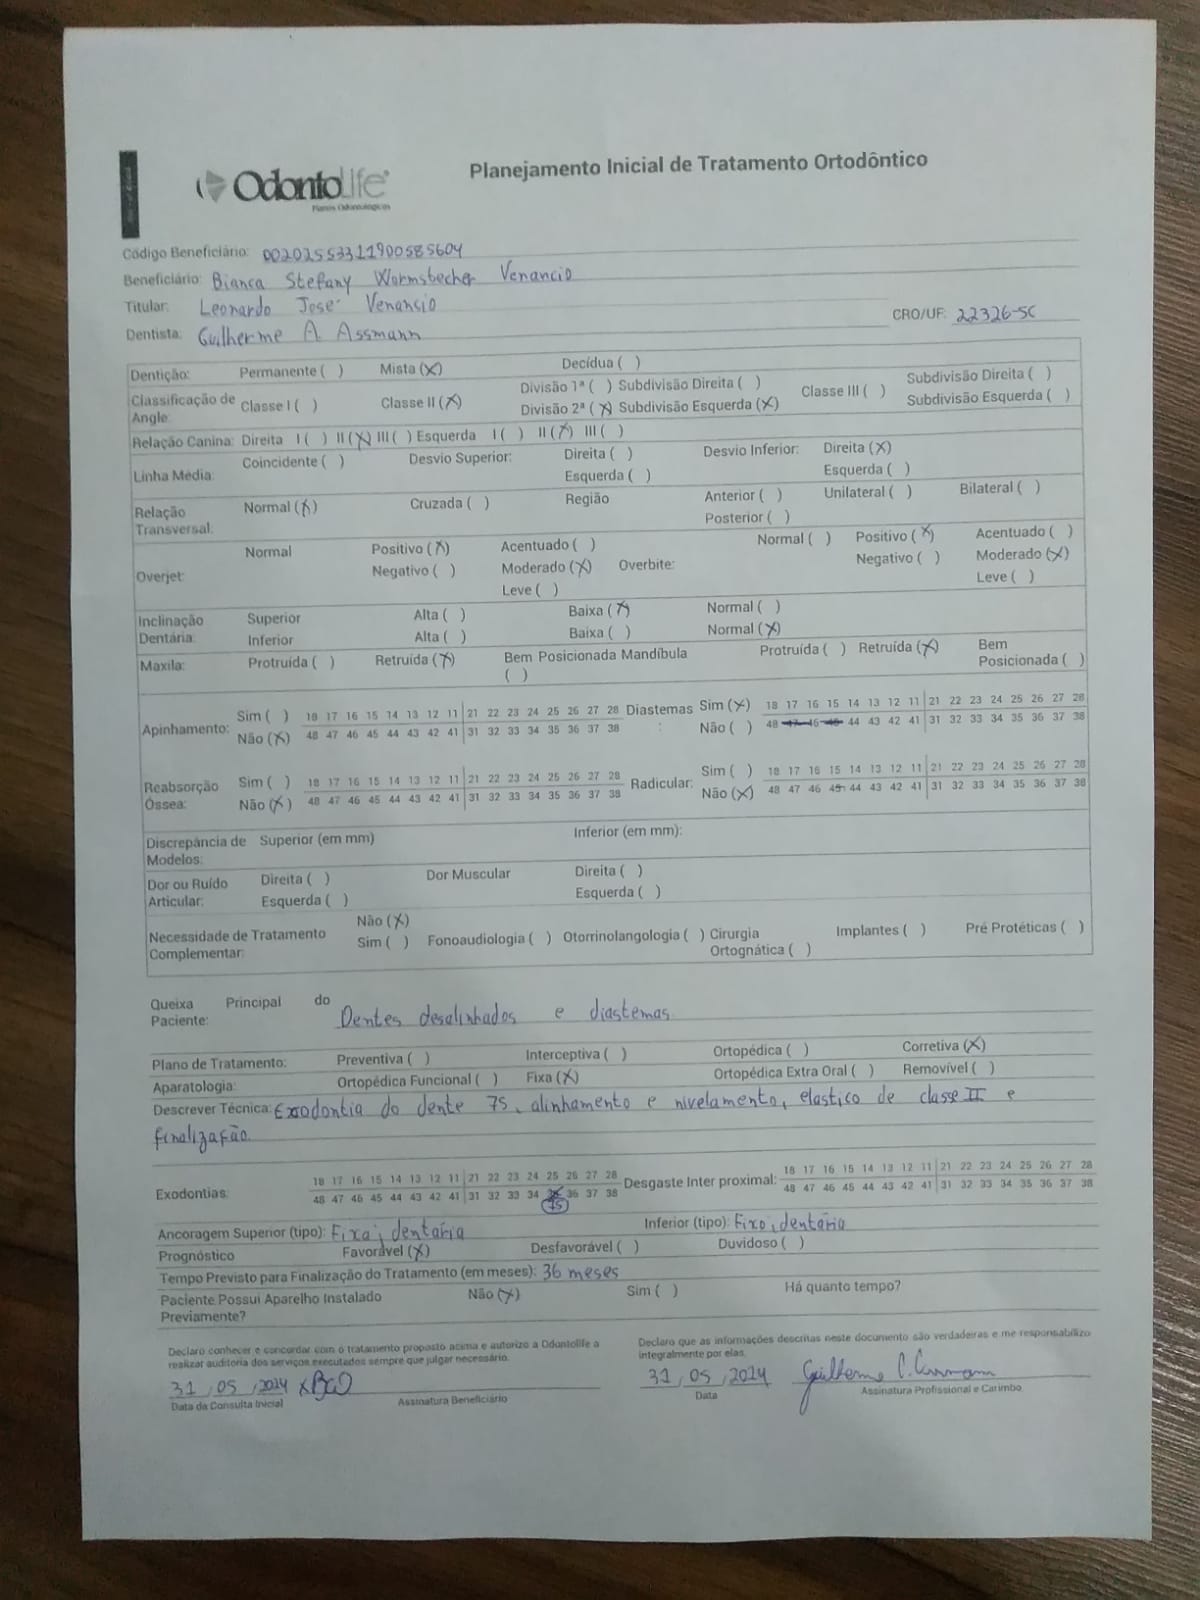 OdontoLife
Planos Odontológicos
Planejamento Inicial de Tratamento Ortodôntico
Código Beneficiário: 00202553311900585604
Beneficiário: Bianca Stefany Wormsbecher Venancio
Titular: Leonardo José Venansio
Dentista: Guilherme A. Assmann CRO/UF: 22326-SC
Dentição: Permanente ( ) Mista (X) Decídua ( )
Classificação de Angle: Classe I ( ) Classe II (X) Divisão 1ª ( ) Subdivisão Direita ( ) Classe III ( ) Subdivisão Direita ( )
Divisão 2ª (X) Subdivisão Esquerda (X) Subdivisão Esquerda ( )
Relação Canina: Direita I ( ) II (X) III ( ) Esquerda I ( ) II (X) III ( )
Linha Média: Coincidente ( ) Desvio Superior: Direita ( ) Desvio Inferior: Direita (X)
Esquerda ( ) Esquerda ( )
Relação Transversal: Normal (X) Cruzada ( ) Região Anterior ( ) Unilateral ( ) Bilateral ( )
Posterior ( )
Overjet: Normal Positivo (X) Acentuado ( ) Overbite: Normal ( ) Positivo (X) Acentuado ( )
Negativo ( ) Moderado (X) Negativo ( ) Moderado (X)
Leve ( ) Leve ( )
Inclinação Dentária: Superior Alta ( ) Baixa (X) Normal ( )
Inferior Alta ( ) Baixa ( ) Normal (X)
Maxila: Protruída ( ) Retruída (X) Bem Posicionada ( ) Mandíbula Protruída ( ) Retruída (X) Bem Posicionada ( )
Apinhamento: Sim ( ) 18 17 16 15 14 13 12 11 21 22 23 24 25 26 27 28 Diastemas: Sim (X) 18 17 16 15 14 13 12 11 21 22 23 24 25 26 27 28
Não (X) 48 47 46 45 44 43 42 41 31 32 33 34 35 36 37 38 Não ( ) 48 47 46 45 44 43 42 41 31 32 33 34 35 36 37 38
Reabsorção Óssea: Sim ( ) 18 17 16 15 14 13 12 11 21 22 23 24 25 26 27 28 Radicular: Sim ( ) 18 17 16 15 14 13 12 11 21 22 23 24 25 26 27 28
Não (X) 48 47 46 45 44 43 42 41 31 32 33 34 35 36 37 38 Não (X) 48 47 46 45 44 43 42 41 31 32 33 34 35 36 37 38
Discrepância de Modelos: Superior (em mm) Inferior (em mm):
Dor ou Ruído Articular: Direita ( ) Dor Muscular Direita ( )
Esquerda ( ) Esquerda ( )
Necessidade de Tratamento Complementar: Não (X)
Sim ( ) Fonoaudiologia ( ) Otorrinolangologia ( ) Cirurgia Ortognática ( ) Implantes ( ) Pré Protéticas ( )
Queixa Principal do Paciente: Dentes desalinhados e diastemas
Plano de Tratamento: Preventiva ( ) Interceptiva ( ) Ortopédica ( ) Corretiva (X)
Aparatologia: Ortopédica Funcional ( ) Fixa (X) Ortopédica Extra Oral ( ) Removível ( )
Descrever Técnica: Exodontia do dente 75, alinhamento e nivelamento, elastico de classe II e
finalização.
Exodontias: 18 17 16 15 14 13 12 11 21 22 23 24 25 26 27 28 Desgaste Inter proximal: 18 17 16 15 14 13 12 11 21 22 23 24 25 26 27 28
48 47 46 45 44 43 42 41 31 32 33 34 35 36 37 38 48 47 46 45 44 43 42 41 31 32 33 34 35 36 37 38
75
Ancoragem Superior (tipo): Fixa, dentaria Inferior (tipo): Fixo, dentária
Prognóstico Favorável (X) Desfavorável ( ) Duvidoso ( )
Tempo Previsto para Finalização do Tratamento (em meses): 36 meses
Paciente Possui Aparelho Instalado Previamente? Não (X) Sim ( ) Há quanto tempo?
Declaro conhecer e concordar com o tratamento proposto acima e autorizo a Odontolife a
realizar auditoria dos serviços executados sempre que julgar necessário.
Declaro que as informações descritas neste documento são verdadeiras e me responsabilizo
integralmente por elas.
31, 05, 2024 x
Data da Consulta Inicial Assinatura Beneficiário
31, 05, 2024 Guilherme
Data Assinatura Profissional e Carimbo